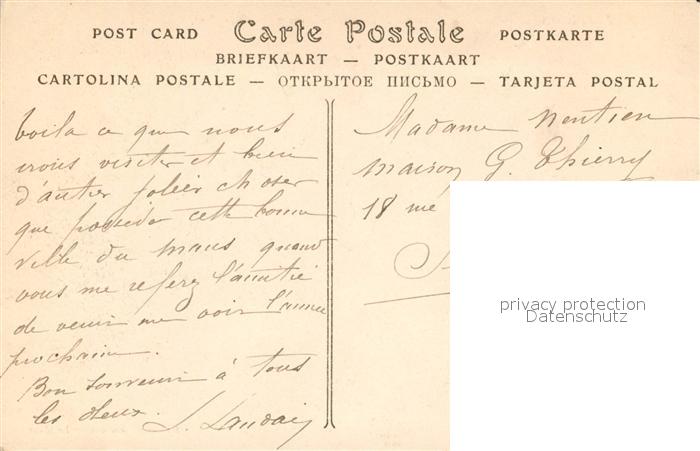 POST CARD Carte Postale POSTKARTE
BRIEFKAART — POSTKAART
CARTOLINA POSTALE — ОТКРЫТОЕ ПИСЬМО — TARJETA POSTAL
voila ce que nous
irons visiter et bien
d'autre jolies choses
que possede cette bonne
ville du mans quand
vous me referez l'amitié
de venir me voir l'année
prochaine.
Bon souvenir à tous
les deux.
Madame
maison G. Thierry
18
privacy protection
Datenschutz